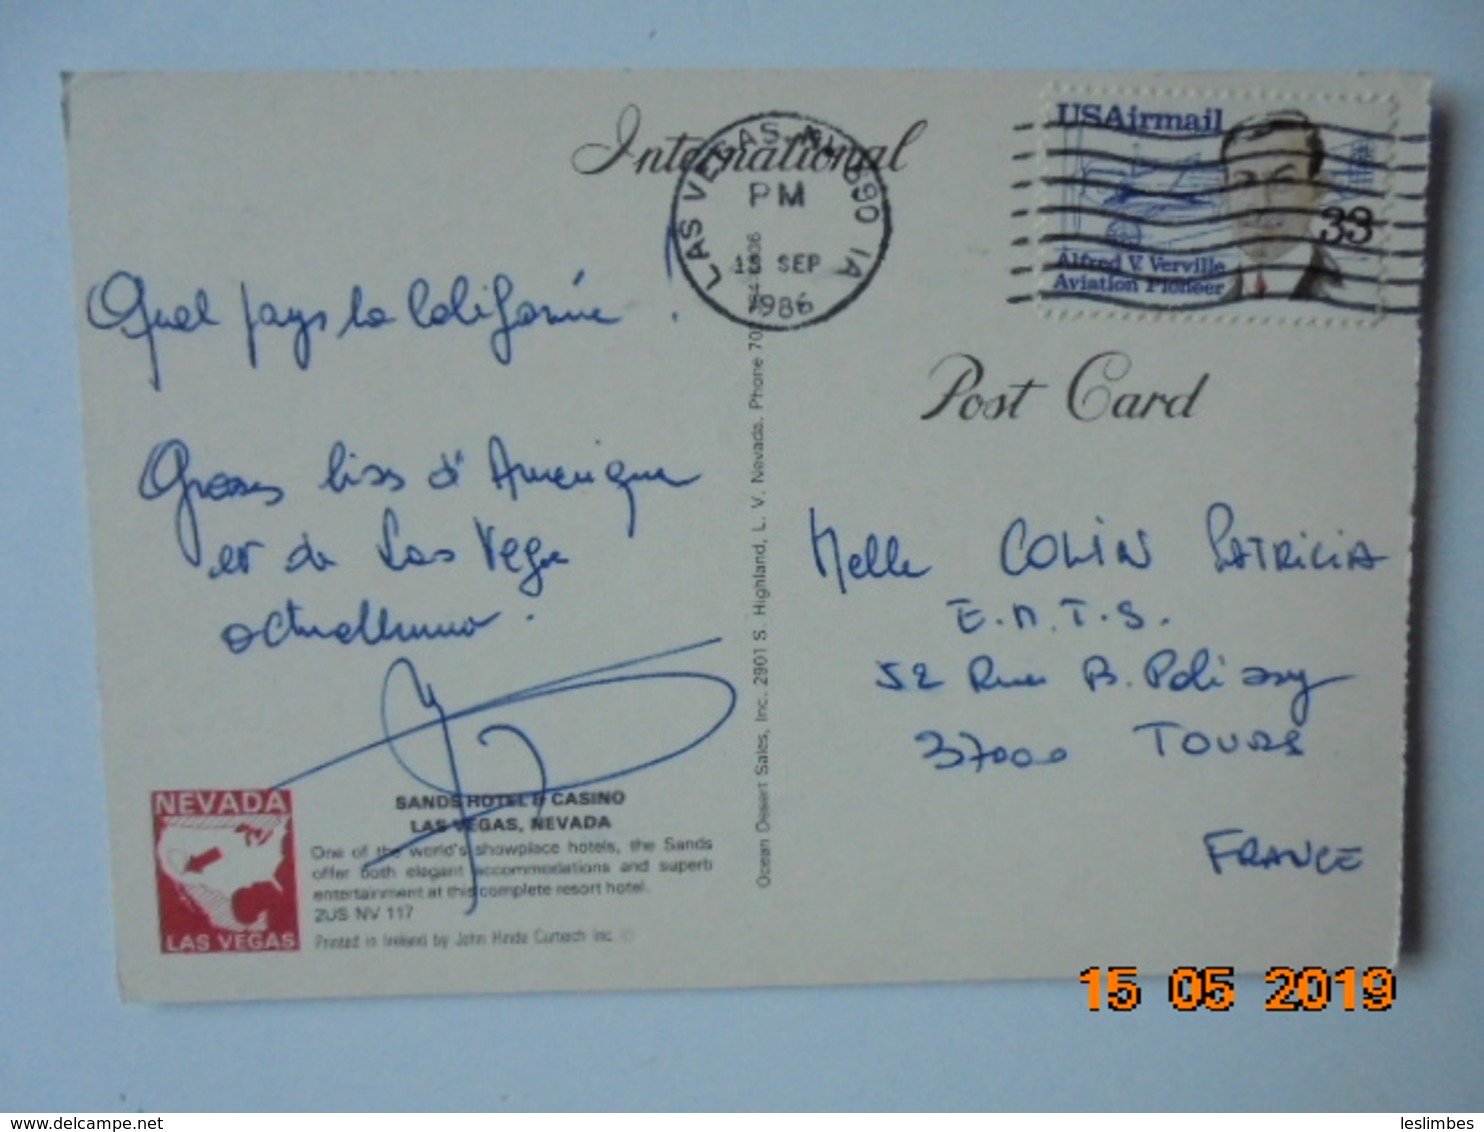 International
USAirmail
33
Alfred V. Verville
Aviation Pioneer
LAS VEGAS, NV 890 1A
PM
SEP
1986
Post Card
Quel pays la Californie !
Grosses bises d'Amérique
et de Las Vegas
actuellement.
Melle COLIN PATRICIA
E.N.T.S.
52 Rue B. Palissy
37000 TOURS
FRANCE
Ocean Desert Sales, Inc. 2901 S. Highland, L. V. Nevada. Phone
NEVADA
LAS VEGAS
SANDS HOTEL & CASINO
LAS VEGAS, NEVADA
One of the world's showplace hotels, the Sands
offer both elegant accommodations and superb
entertainment at this complete resort hotel.
2US NV 117
Printed in Ireland by John Hinde Curteich Inc. ©
15 05 2019
www.delcampe.net
leslimbes